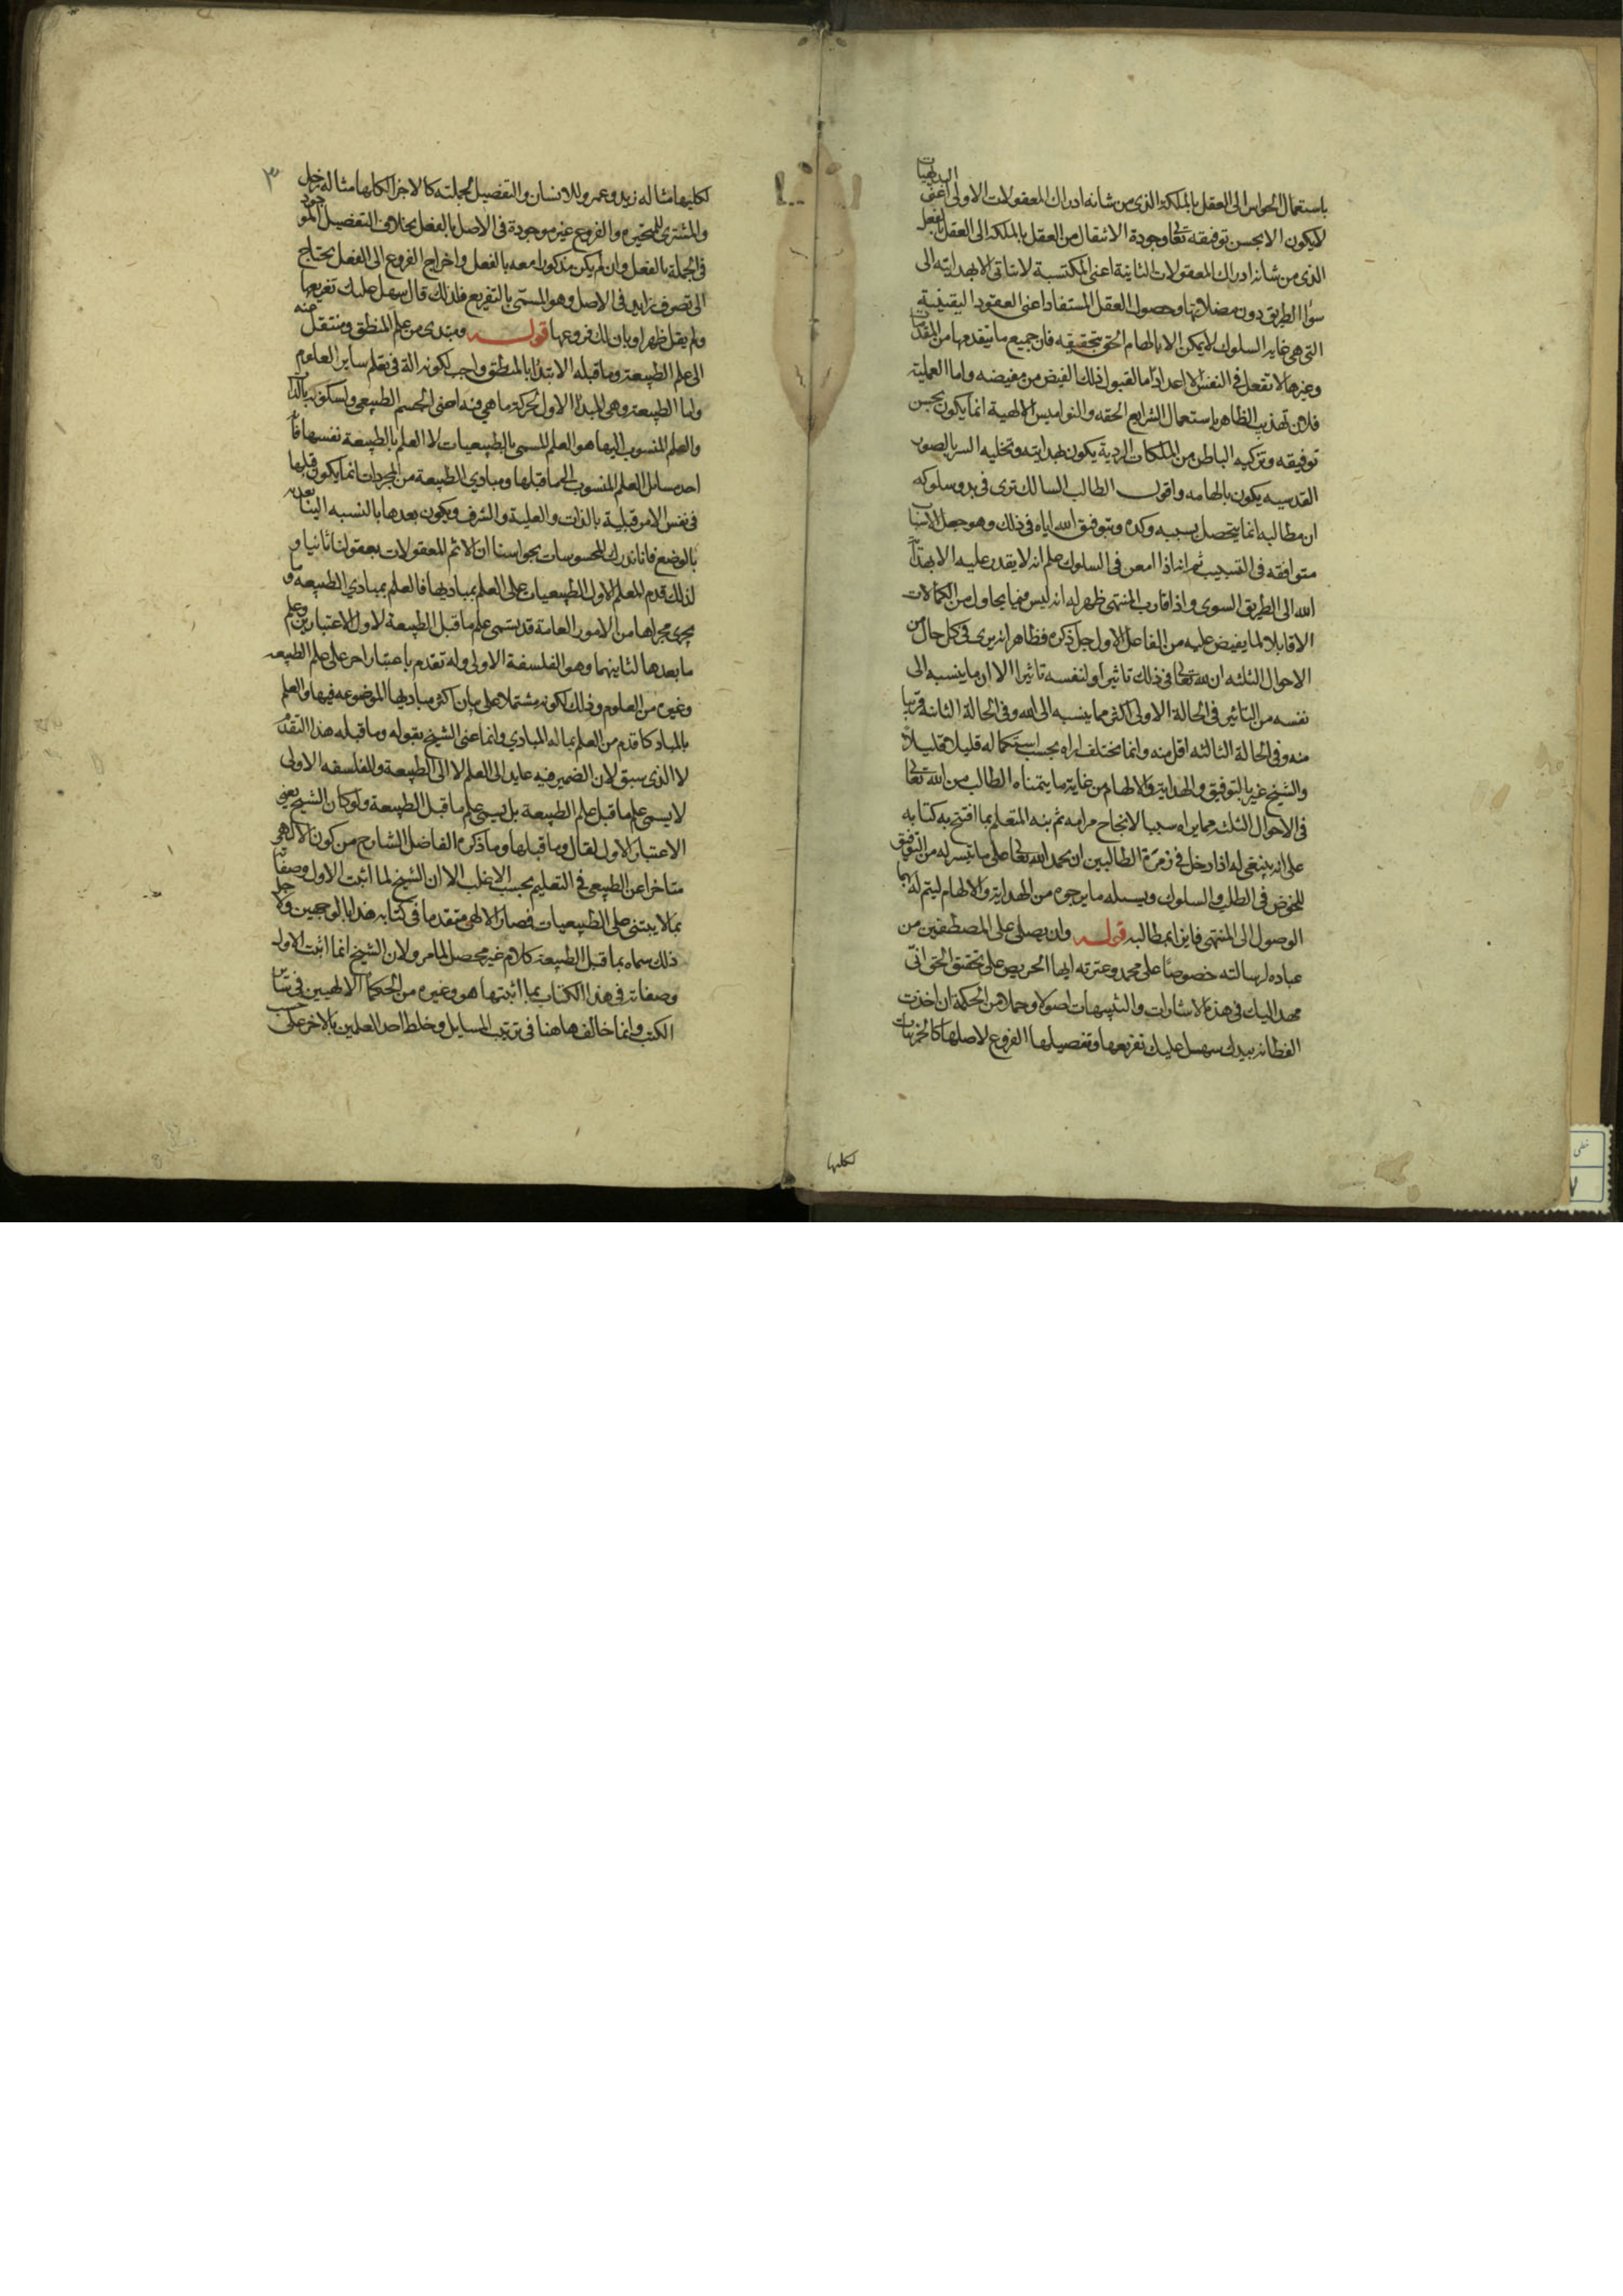 باستعمال الحواس الى العقل بالملكة الذى من شانه ادراك المعقولات الاولى اعنى البديهيات
لا يكون الا بحسن توفيقه تعالى وجودة الانتقال من العقل بالملكة الى العقل بالفعل
الذى من شانه ادراك المعقولات الثانية اعنى المكتسبة لا يتاتى الا بهدايته الى
سواء الطريق دون مضلاتها وحصول العقل المستفاد اعنى العقود اليقينية
التى هى غاية السلوك لا يمكن الا بالهام الحق بتحقيقه فان جميع ما يتقدمها من المقدمات
وغيرها لا تفعل فى النفس الا اعدادا ما لقبول ذلك الفيض من مفيضه واما العملية
فلان تهذيب الظاهر باستعمال الشرايع الحقه والنواميس الالهية انما يكون بحسن
توفيقه وتزكيه الباطن من الملكات الردية يكون بهدايته وتحليه السر بالصور
القدسيه يكون بالهامه واقول الطالب السالك ترى فى بدو سلوكه
ان مطالبه انما يتحصل بسببه وكده وبتوفيق الله اياه فى ذلك وهو جعل الاسباب
متوافقه فى التسبيب ثم انه اذا امعن فى السلوك علم انه لا يقدر عليه الا بهداية
الله الى الطريق السوى واذا قارب المنتهى ظهر له انه ليس فيما يحاول من الكمالات
الا قابلا لما يفيض عليه من الفاعل الاول جل ذكره فظاهر انه يرى فى كل حال من
الاحوال الثلثه ان لله تعالى فى ذلك تاثيرا ولنفسه تاثيرا الا ان ما ينسبه الى
نفسه من التاثير فى الحالة الاولى اكثر مما ينسبه الى الله وفى الحالة الثانية قريبا
منه وفى الحالة الثالثه اقل منه وانما يختلف اراه بحسب استكماله قليلا قليلا
والشيخ عبر بالتوفيق والهداية والالهام من غاية ما يتمناه الطالب من الله تعالى
فى الاحوال الثلثه مما يراه سببا لانجاح مرامه ثم نبه المتعلم بما افتتح به كتابه
على انه ينبغى له اذا دخل فى زمرة الطالبين ان يحمد الله تعالى على ما تيسر له من التوفيق
للخوض فى الطلب والسلوك ويسله ما يرجوه من الهداية والالهام ليتم له بهما
الوصول الى المنتهى فايزا بمطالبه قوله وان يصلى على المصطفين من
عباده لرسالته خصوصا على محمد وعترته ايها الحريص على تحقق الحق انى
مهد اليك فى هذه الاشارات والتنبيهات اصولا وجملا من الحكمة ان اخذت
الفطانه بيدك سهل عليك تفريعها وتفصيلها الفروع لاصلها كالجزئيات
لكليها
٣
لكليها مثاله زيد وعمرو للانسان والتفصيل لجملته كالاجزا لكلها مثاله زحل
والمشترى للمتحيره والفروع غير موجودة فى الاصل بالفعل بخلاف التفصيل الموجود
فى الجملة بالفعل وان لم يكن مذكورا معه بالفعل واخراج الفروع الى الفعل يحتاج
الى تصرف زايد فى الاصل وهو المسمى بالتفريع فلذلك قال سهل عليك تفريعها
ولم يقل ظهر او بان لك فروعها قوله ومبتدى من علم المنطق ومنتقل عنه
الى علم الطبيعة وما قبله الابتدا بالمنطق واجب لكونه الة فى تعلم ساير العلوم
واما الطبيعة وهى المبدا الاول لحركة ما هى فيه اعنى الجسم الطبيعى ولسكونه بالذات
والعلم المنسوب اليها هو العلم المسمى بالطبيعيات لا العلم بالطبيعة نفسها فانه
احد مسائل العلم المنسوب الى ما قبلها ومبادى الطبيعة من المجردات انما يكون قبلها
فى نفس الامر قبلية بالذات والعلية والشرف ويكون بعدها بالنسبه الينا بعديه
بالوضع فانا ندرك المحسوسات بحواسنا اولا ثم المعقولات بعقولنا ثانيا و
لذلك قدم المعلم الاول الطبيعيات على العلم بمباديها فالعلم بمبادى الطبيعه وما
يجرى مجراها من الامور العامة قد يسمى علم ما قبل الطبيعة لاول الاعتبارين وعلم
ما بعدها لثاينهما وهو الفلسفة الاولى وله تقدم باعتبار اخر على علم الطبيعه
وغيره من العلوم وذلك لكونه مشتملا على بيان اكثر مباديها الموضوعه فيها والعلم
بالمبادى كاقدم من العلم بما له المبادى وانما عنى الشيخ بقوله وما قبله هذا التقدم
لا الذى سبق لان الضمير فيه عايد الى العلم لا الى الطبيعة والفلسفه الاولى
لا يسمى علم ما قبل علم الطبيعة بل يسمى علم ما قبل الطبيعة ولو كان الشيخ يعنى
الاعتبار الاول لقال وما قبلها وما ذكره الفاضل الشارح من كون الالهى
متاخرا عن الطبيعى فى التعليم بحسب الاغلب الا ان الشيخ لما اثبت الاول وصفاته
بما لا يبتنى على الطبيعيات فصار الالهى متقدما فى كتابه هذا بالوجهين ولاجل
ذلك سماه بما قبل الطبيعة كلام غير محصل لما مر ولان الشيخ انما اثبت الاول
وصفاته فى هذا الكتاب بما اثبتها هو وغيره من الحكما الالهيين فى ساير
الكتب وانما خالف هاهنا فى ترتيب المسايل وخلط احد العلمين بالاخر على حسب